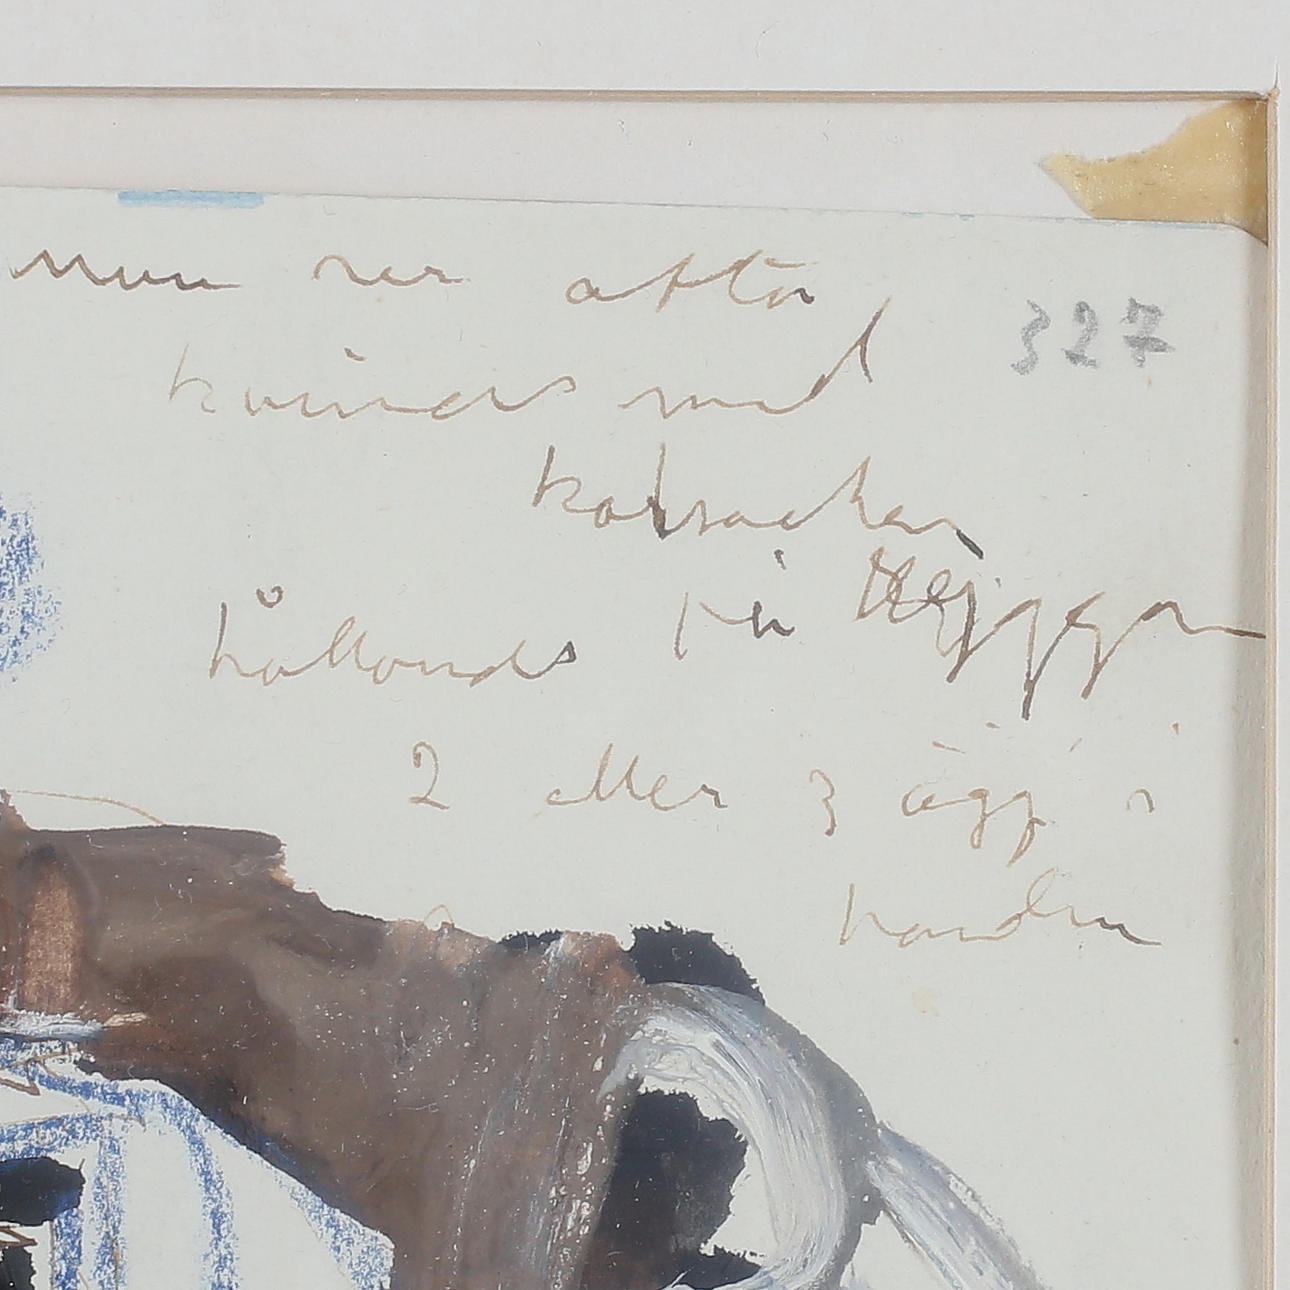 man ser ofta
327
kvinnor med
hållands på Ryggen
2 eller 3 ägg i
handen